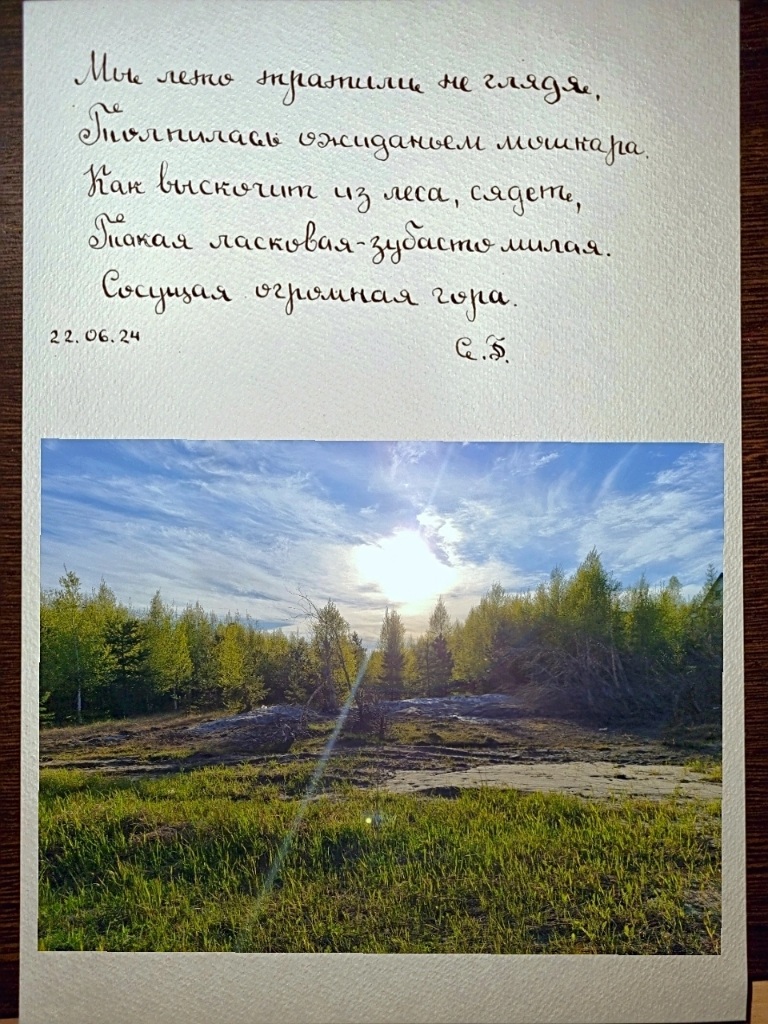 Мы лето тратили не глядя,
Толпилась ожиданьем мошкара.
Как выскочит из леса, сядет,
Такая ласковая-зубасто милая.
Сосущая огромная гора.
22.06.24
С.Б.